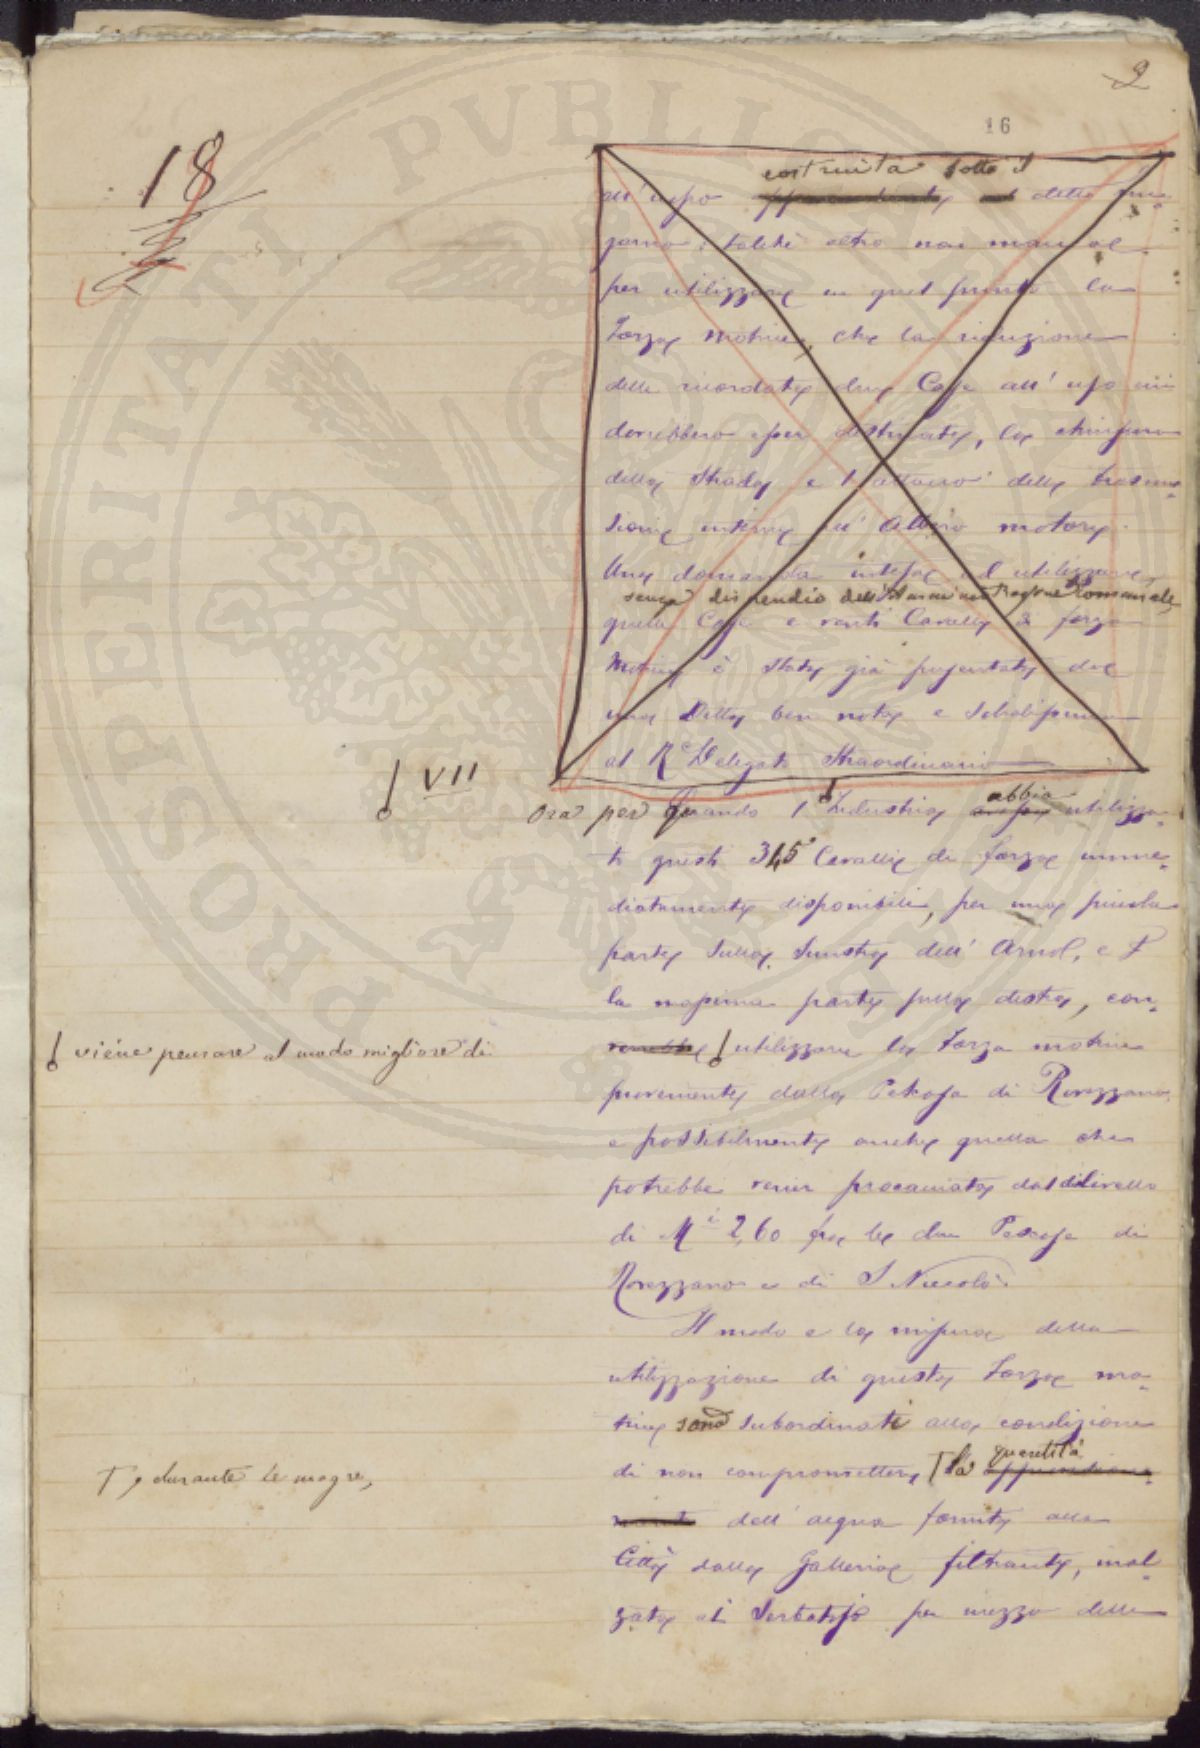 2
16
18
costruita sotto il
all'uopo detto in-
gorno; talchè altro non manca
per utilizzare in quel punto la
Forza motrice, che la riduzione
delle ricordate due Case all'uso cui
dovrebbero esser destinate, la chiusura
della Strada e l'attacco delle trasmis-
sioni interne all'Albero motore.
Una domanda intesa ad utilizzare,
senza dispendio dell'Amministrazione Comunale,
quelle Case e venti Cavalli di forza
motrice è stata già presentata da
una Ditta ben nota e solidissima
al R° Delegato Straordinario
VII
Ora per quando l'Industria abbia utilizza-
ti questi 345 Cavalli di forza imme-
diatamente disponibili, per una piccola
parte sulla Sinistra dell'Arno, e
la massima parte sulla destra, con-
viene pensare al modo migliore di
utilizzare la Forza motrice
proveniente dalla Pescaja di Rovezzano,
e possibilmente anche quella che
potrebbe venir procacciata dal dilivello
di M.i 2,60 fra le due Pescaje di
Rovezzano e di S. Niccolò.
Il modo e la misura della
utilizzazione di questa Forza mo-
trice sono subordinati alla condizione
di non compromettere, T la quantità
T, durante le magre,
dell'acqua fornita alla
Città dalla Galleria filtrante, inal-
zata ai Serbatoj per mezzo delle